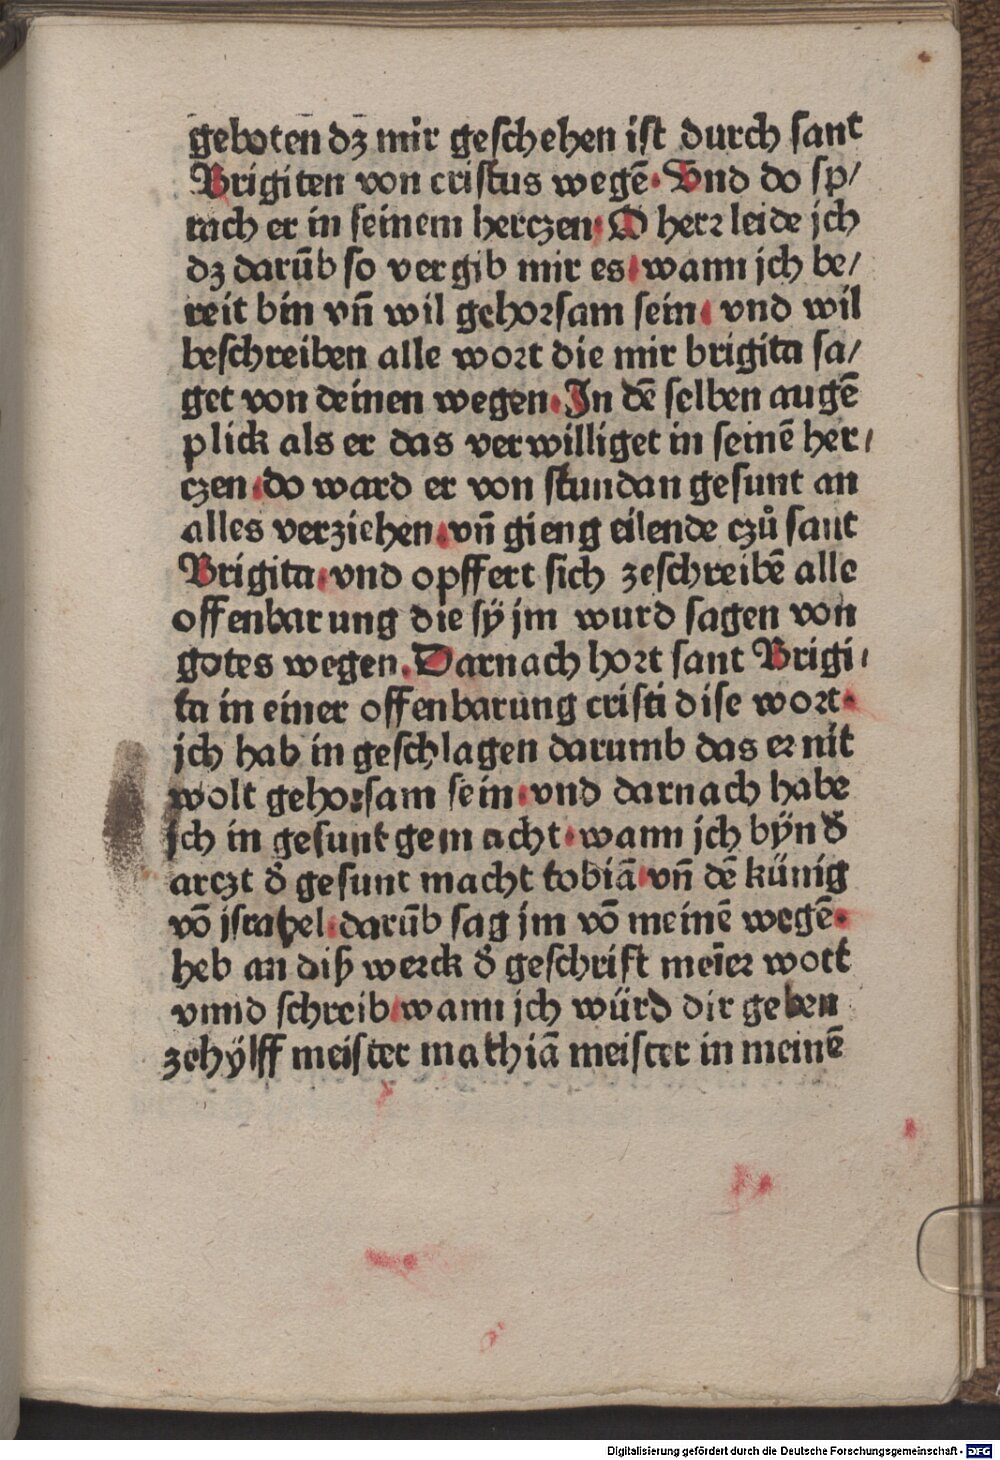 geboten dz mir geschehen ist durch sant
Brigiten von cristus wegē. Vnd do sp/
rach er in seinem herczen. O herr leide jch
dz darūb so vergib mir es. wann jch be/
reit bin vn̄ wil gehorsam sein. vnd wil
beschreiben alle wort die mir brigita sa/
get von deinen wegen. In dē selben augē
plick als er das verwilliget in seinē her/
czen. do ward er von stundan gesunt an
alles verziehen. vn̄ gieng eilende czů sant
Brigita. vnd opffert sich zeschreibē alle
offenbarung die sÿ jm wurd sagen von
gotes wegen. Darnach hort sant Brigi/
ta in einer offenbarung cristi dise wort.
jch hab in geschlagen darumb das er nit
wolt gehorsam sein. vnd darnach habe
jch in gesunt gemacht. wann jch bÿn d̄
arczt d̄ gesunt macht tobiā. vn̄ dē künig
vō jsrahel. darūb sag jm vō meinē wegē.
heb an diß werck d̄ geschrift meīer wort
vnnd schreib. wann jch würd dir geben
zehÿlff meister mathiā meister in meinē
Digitalisierung gefördert durch die Deutsche Forschungsgemeinschaft - DFG